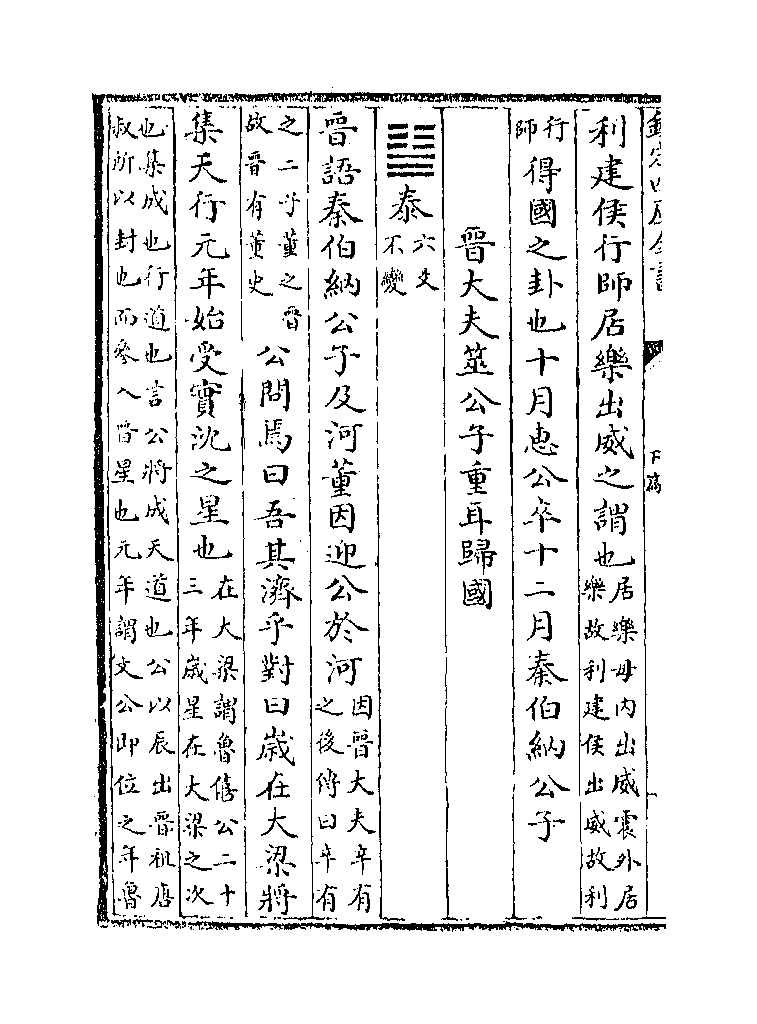 欽定四庫全書
下篇
利建侯行師居樂出威之謂也居樂母内出威震外居
樂故利建侯出威故利
行
師得國之卦也十月惠公卒十二月秦伯納公子
晉大夫筮公子重耳歸國
䷊泰六爻
不變
晉語秦伯納公子及河董因迎公於河因晉大夫辛有
之後傳曰辛有
之二子董之晉
故晉有董史公問焉曰吾其濟乎對曰歲在大梁將
集天行元年始受實沈之星也在大梁謂魯僖公二十
三年歲星在大梁之次
也集成也行道也言公將成天道也公以辰出晉祖唐
叔所以封也而參入晉星也元年謂文公即位之年魯